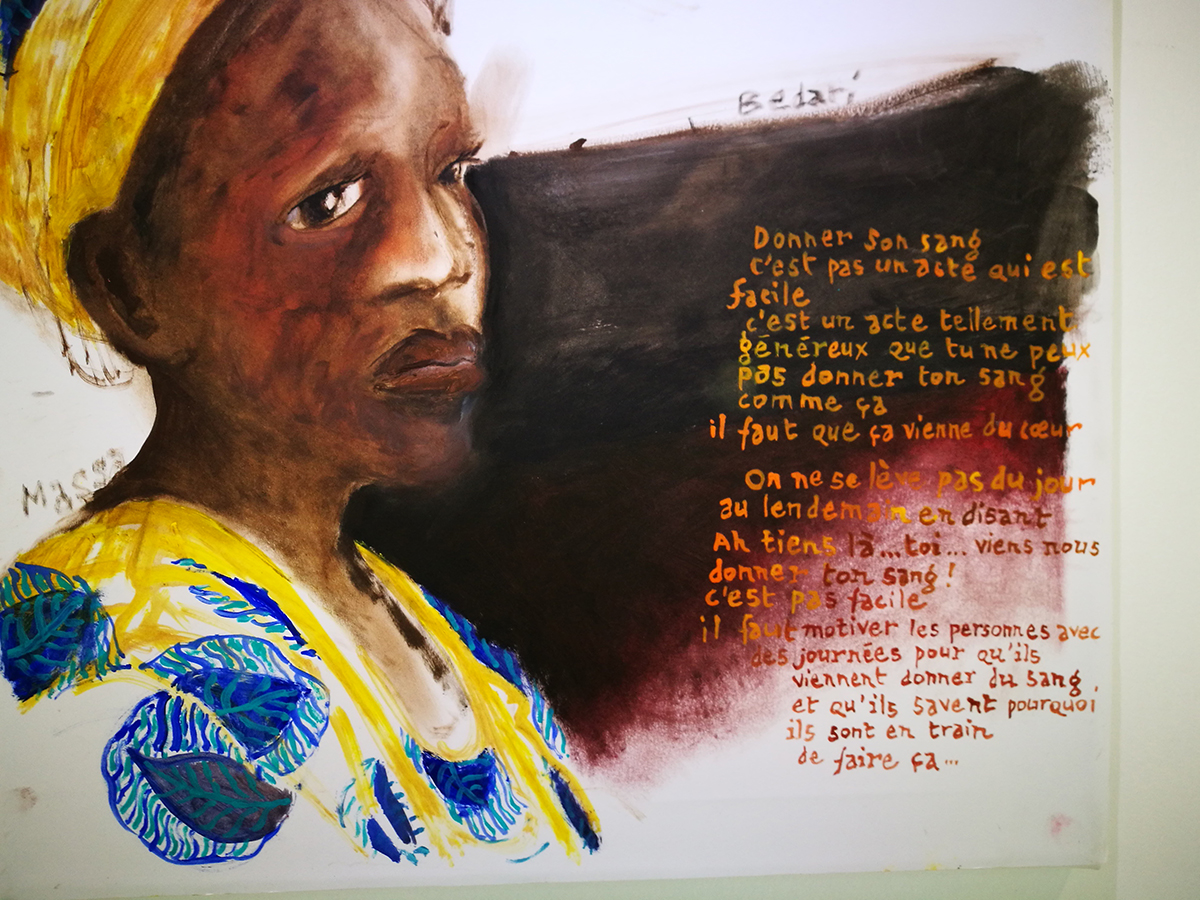 Bedari
Donner son sang
c'est pas un acte qui est
facile
c'est un acte tellement
généreux que tu ne peux
pas donner ton sang
comme ça
il faut que ça vienne du cœur
On ne se lève pas du jour
au lendemain en disant
Ah tiens là... toi... viens nous
donner ton sang !
c'est pas facile
il faut motiver les personnes avec
des journées pour qu'ils
viennent donner du sang
et qu'ils savent pourquoi
ils sont en train
de faire ça...